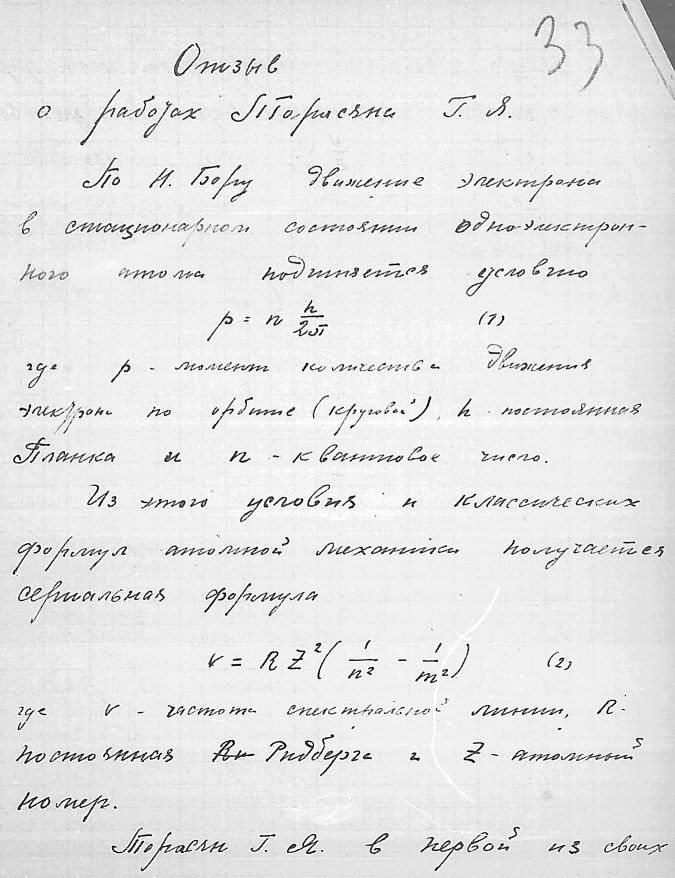 33
Отзыв
о работах Торосяна Г. Я.
По Н. Бору движение электрона
в стационарном состоянии одноэлектрон-
ного атома подчиняется условию
p = n h/2π (1)
где p - момент количества движения
электрона по орбите (круговой), h - постоянная
Планка и n - квантовое число.
Из этого условия и классических
формул атомной механики получается
сериальная формула
ν = R Z² ( 1/n² - 1/m² ) (2)
где ν - частота спектральной линии, R -
постоянная Ридберга и Z - атомный
номер.
Торосян Г. Я. в первой из своих